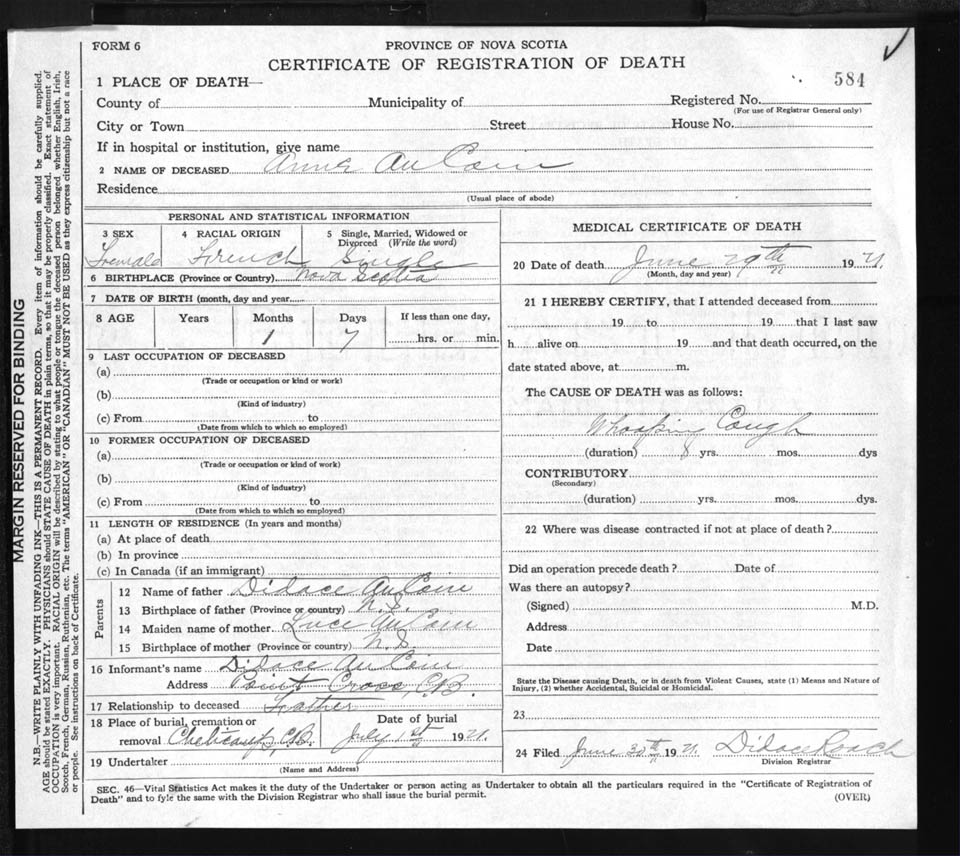 FORM 6
PROVINCE OF NOVA SCOTIA
CERTIFICATE OF REGISTRATION OF DEATH
584
1 PLACE OF DEATH—
County of Municipality of Registered No.
(For use of Registrar General only)
City or Town Street House No.
If in hospital or institution, give name
2 NAME OF DECEASED Annie Au Coin
Residence
(Usual place of abode)
PERSONAL AND STATISTICAL INFORMATION
3 SEX 4 RACIAL ORIGIN 5 Single, Married, Widowed or Divorced (Write the word)
Female French Single
6 BIRTHPLACE (Province or Country) Nova Scotia
7 DATE OF BIRTH (month, day and year)
8 AGE Years Months Days If less than one day,
1 7 hrs. or min.
9 LAST OCCUPATION OF DECEASED
(a)
(Trade or occupation or kind or work)
(b)
(Kind of industry)
(c) From to
(Date from which to which so employed)
10 FORMER OCCUPATION OF DECEASED
(a)
(Trade or occupation or kind of work)
(b)
(Kind of industry)
(c) From to
(Date from which to which so employed)
11 LENGTH OF RESIDENCE (In years and months)
(a) At place of death
(b) In province
(c) In Canada (if an immigrant)
Parents
12 Name of father Didace Au Coin
13 Birthplace of father (Province or country) N.S.
14 Maiden name of mother Luce Au Coin
15 Birthplace of mother (Province or country) N.S.
16 Informant's name Didace Au Coin
Address Point Cross, C.B.
17 Relationship to deceased Father
18 Place of burial, cremation or Date of burial
removal Cheticamp, C.B. July 1st 1921.
19 Undertaker
(Name and Address)
MEDICAL CERTIFICATE OF DEATH
20 Date of death June 29th 1921.
(Month, day and year)
21 I HEREBY CERTIFY, that I attended deceased from
19 to 19 that I last saw
h alive on 19 and that death occurred, on the
date stated above, at m.
The CAUSE OF DEATH was as follows:
Whooping Cough
(duration) 8 yrs. mos. dys
CONTRIBUTORY
(Secondary)
(duration) yrs. mos. dys.
22 Where was disease contracted if not at place of death?
Did an operation precede death? Date of
Was there an autopsy?
(Signed) M.D.
Address
Date
State the Disease causing Death, or in death from Violent Causes, state (1) Means and Nature of
Injury, (2) whether Accidental, Suicidal or Homicidal.
23
24 Filed June 30th 1921. Didace Roach
Division Registrar
SEC. 46—Vital Statistics Act makes it the duty of the Undertaker or person acting as Undertaker to obtain all the particulars required in the "Certificate of Registration of
Death" and to fyle the same with the Division Registrar who shall issue the burial permit.
(OVER)
MARGIN RESERVED FOR BINDING
N.B.—WRITE PLAINLY WITH UNFADING INK—THIS IS A PERMANENT RECORD. Every item of information should be carefully supplied.
AGE should be stated EXACTLY. PHYSICIANS should STATE CAUSE OF DEATH in plain terms, so that it may be properly classified. Exact statement of
OCCUPATION is very important. RACIAL ORIGIN will be described by stating to what people or tongue the deceased person belonged whether English, Irish,
Scotch, French, German, Russian, Ruthenian, etc. The terms "AMERICAN" OR "CANADIAN" MUST NOT BE USED as they express citizenship but not a race
or people. See instructions on back of Certificate.